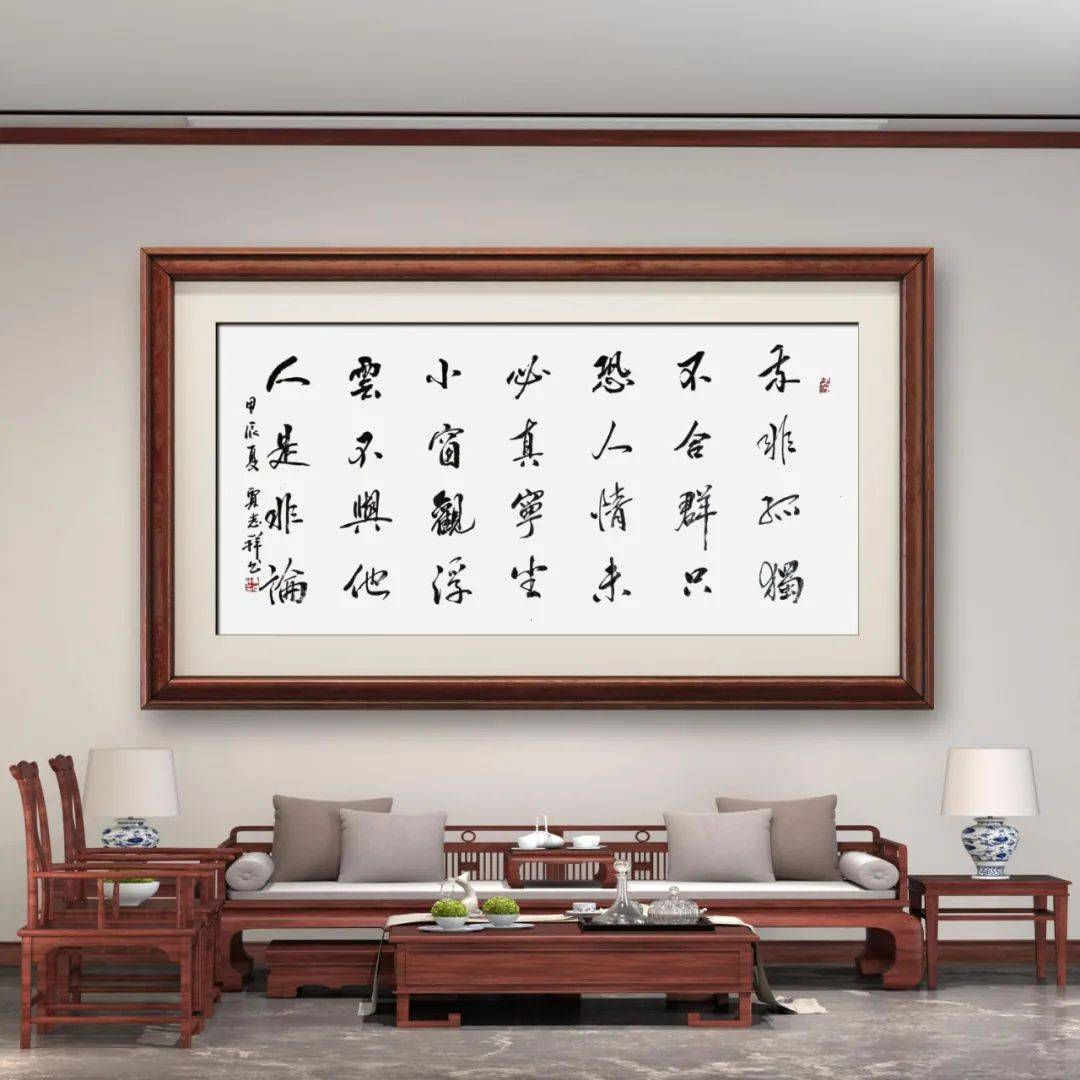 本非孤獨
不合群只
恐人情未
必真寧坐
小窗觀浮
雲不與他
人是非論
甲辰夏 賈志祥书